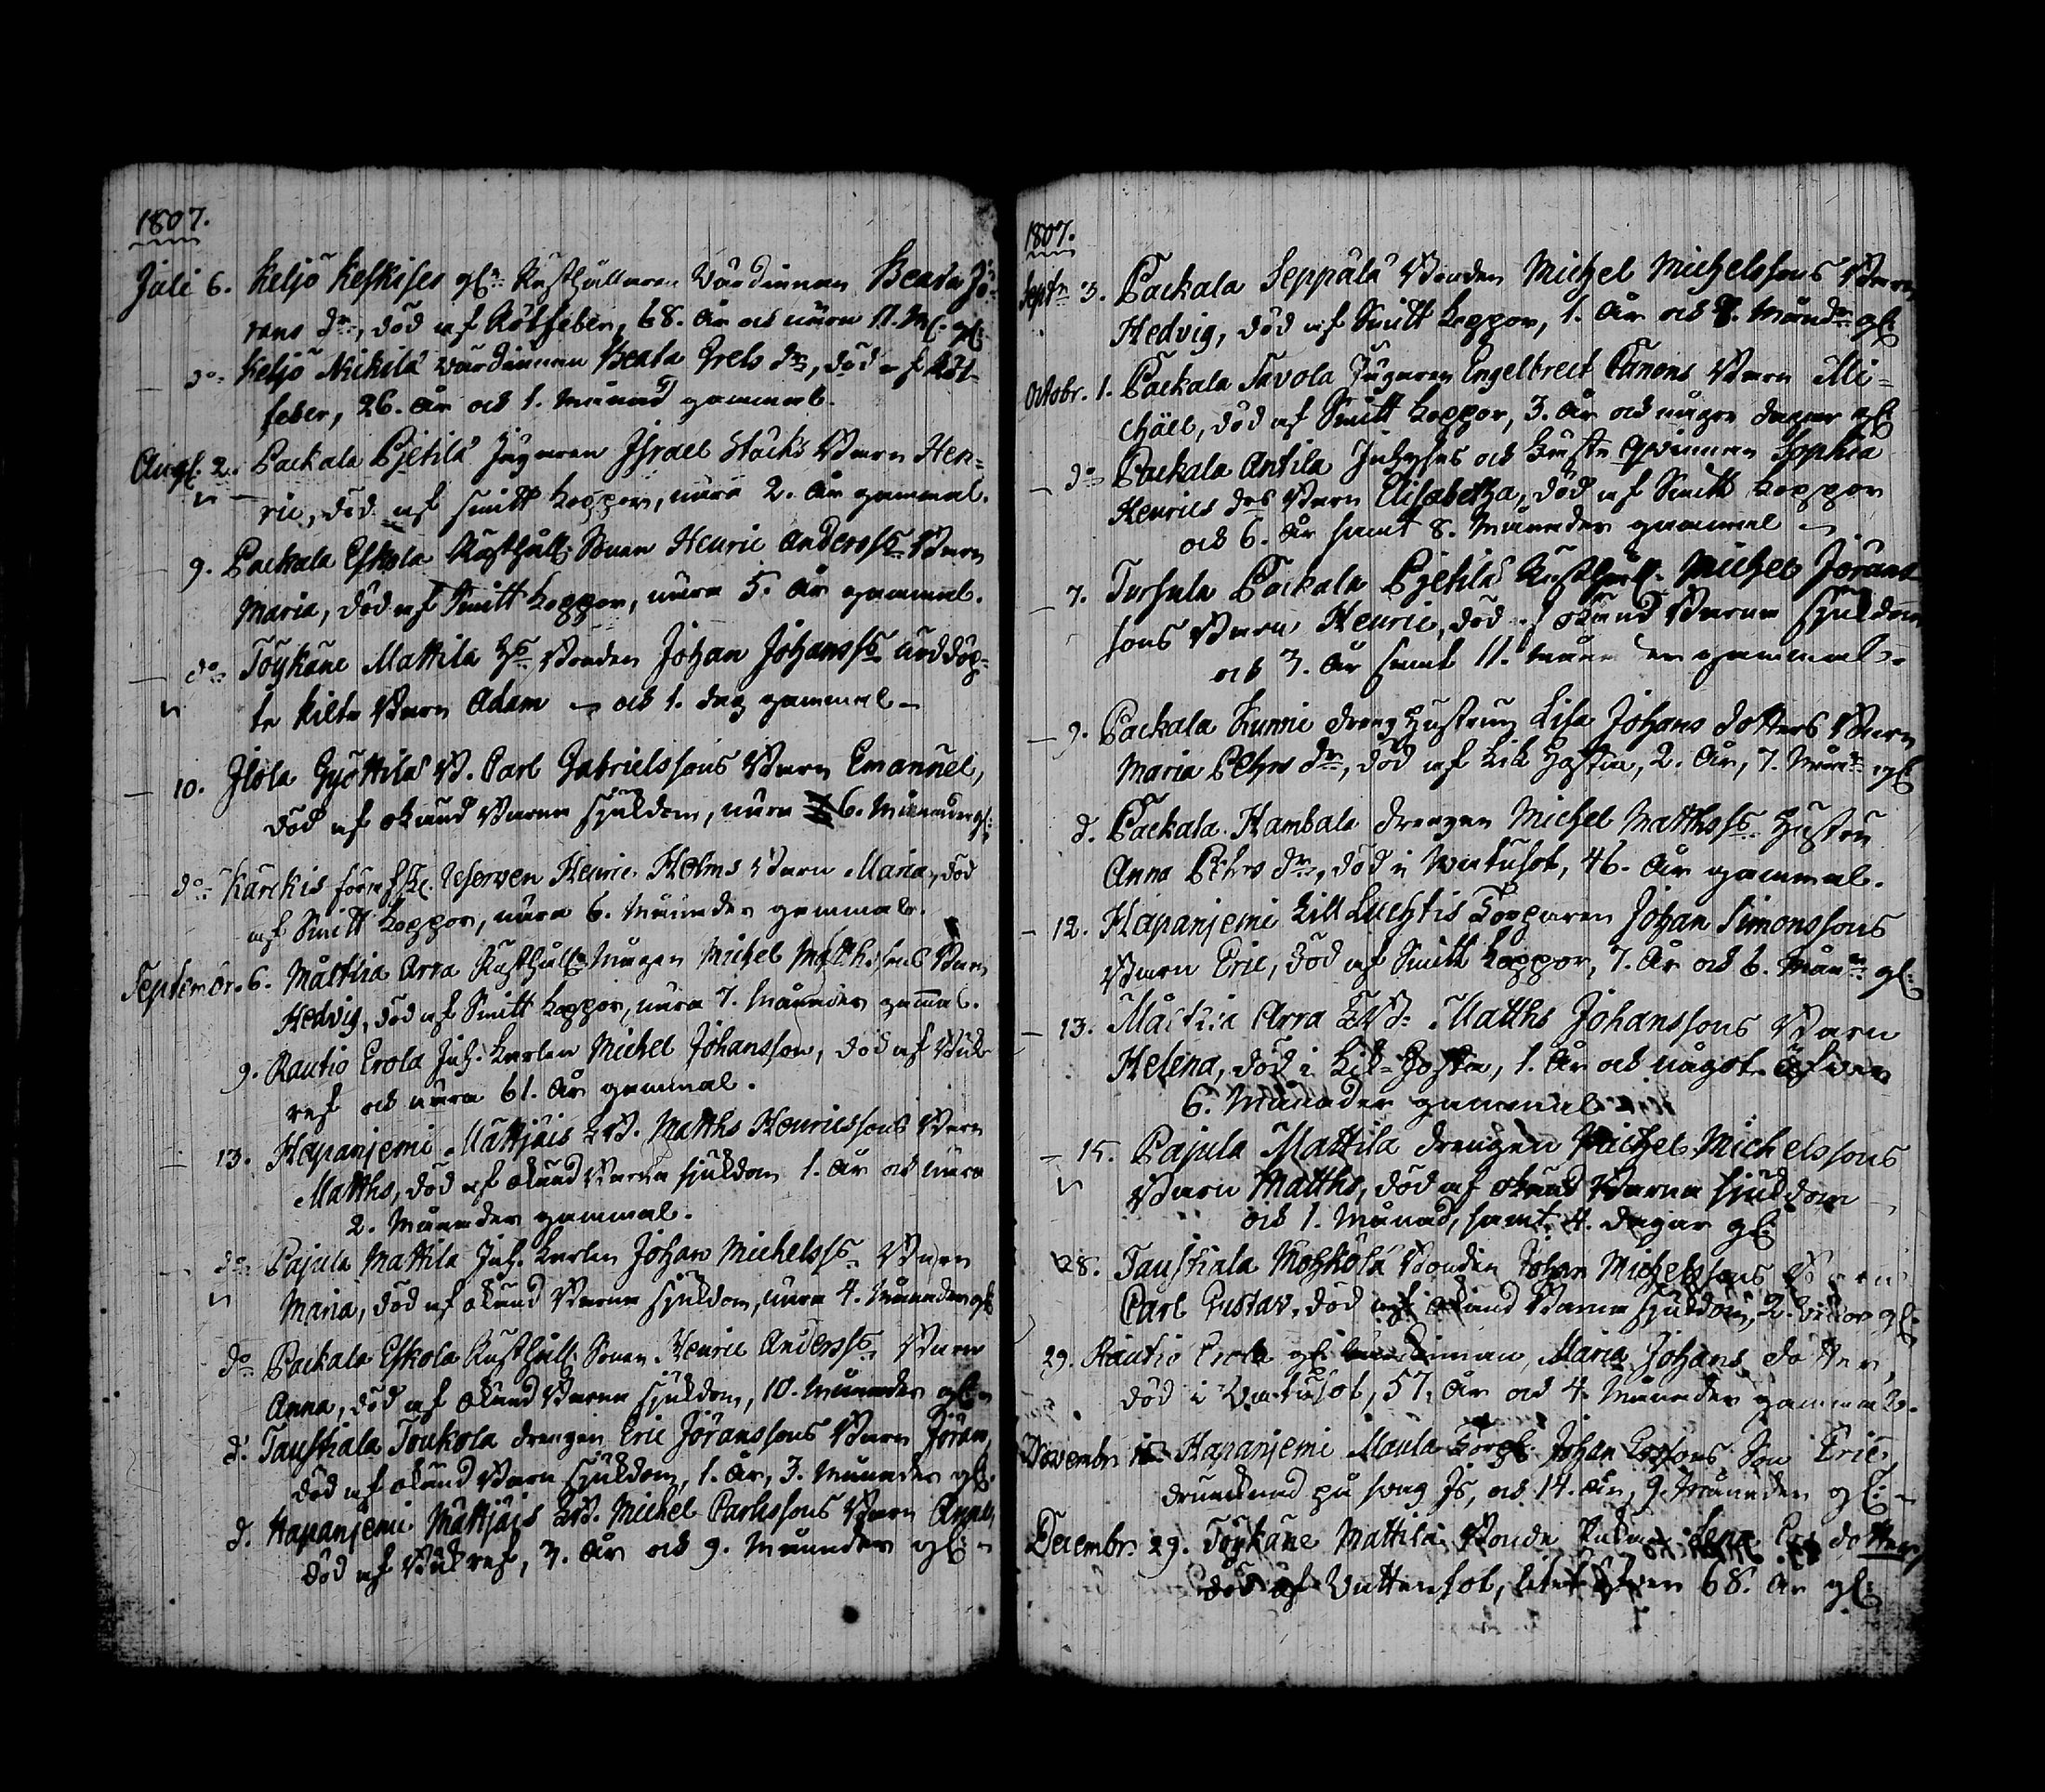 1807.
Juli 6. Keljo Keskises gl: Rusthållaren Värdinnan Beata Jö-
rans dr, död af Rötfeber, 68. år och nära 11. M: gl:
do Keljo Nickilä värdinnan Beata Grels dr, död af Röt-
feber, 26. år och 1. månad gammal.
Aug. 2. Packala Pjetilä Jägaren Israel Stocks Barn Hen-
ric, död af smitt koppor, nära 2. år gammal.
9. Packala Eskola Rusthåll. Sonen Henric Anderss Barn
Maria, död af Smitt koppor, nära 5. år gammal.
do Töykäne Mattila Bonden Johan Johanss nöddöp-
te lilte Barn Adam och 1. dag gammal
10. Jlola Gyöttilä B. Carl Gabrielssons Barn Emanuel,
död af okänd Barna sjukdom, nära 6. Månader gl:
do Kärckis Reserven Henric Holms Barn Maria, död
af Smitt koppor, nära 6. Månader gammal.
September. 6. Mälkiä Arra Rusthåll Mågen Michel Matthssons Barn
Hedvig, död af Smitt koppor, nära 7. Månader gammal.
9. Rautio Erola Inh. karlen Michel Johansson, död af Bukref
och nära 61. år gammal.
13. Hapanjemi Mattjais LB. Matths Henricssons Barn
Matths, död af okänd Barna sjukdom 1. år och nära
2. Månader gammal.
do Pajula Mattila Inh. karlen Johan Michelss Barn
Maria, död af okänd Barna sjukdom, nära 4. Månader gl
do Packala Eskola Rusthåll Sonen Henric Anderss Barn
Anna, död af okänd Barna sjukdom, 10. Månader gl:
d. Tauskala Toukola drengen Eric Jöranssons Barn Jöran,
död af okänd Barn sjukdom, 1. år, 3. Månader gl:
d. Hapanjemi Mattjais LB. Michel Carlssons Barn Anna,
död af Bukref, 3. år och 9. Månader gl:
1807.
Septr 3. Packala Seppälä Bonden Michel Michelssons Barn
Hedvig, död af Smitt koppor, 1. år och 8. Månadr gl:
Octobr. 1. Packala Tavola Jägaren Engelbrect Canons Barn Mi-
chäel, död af Smitt koppor, 3. år och några dagar gl:
do Packala Antila Inhyses och qvinnan Sophia
Henrics drs Barn Elisabetha, död af Smitt koppor
och 6. år samt 8. Månader gammal
7. Tursula Packala Pjetilä Rusthåll. Michel Jörans-
sons Barn Henric, död af okänd Barna sjukdom
och 3. år samt 11. månader gammal.
9. Packala Kunni dreng Hustrun Lisa Johans dotters Barn
Maria Pehrs dr, död af Kik Hosta, 2. år, 7. Mån gl:
d. Packala Hambala drengen Michel Matthss Hustru
Anna Pehrs dr, död i Watusot, 46. år gammal.
12. Hapanjemi Lill Luchtis Torparen Johan Simonssons
Barn Eric, död af Smitt koppor, 7. år och 6. Månr gl:
13. Mälkiä Arra LB: Matths Johanssons Barn
Helena, död i Kik-Hosta, 1. år och något öfver
6. Månader gammal
15. Pajula Mattila drengen Michel Michelssons
Barn Matths, död af okänd Barna sjukdom
och 1. Månad, samt 4. dagar gl:
28. Tauskala Mohkola Bonden Johan Michelssons Barn
Carl Gustav, död af okänd Barna sjukdom, 2. veckor gl:
29. Rautio Erola gl: Maria Johans dotter,
död i Watusot, 57. år och 4. Månader gammal.
Novembr. Hapanjemi Maula Torp. Johan Son Eric,
drunknad på svag Js, och 14. år, 9. Månader gl:
Decembr. 29. Töykäne Mattila Bonde Lena dotter,
död af Vattensot, litet öfver 68. år gl: